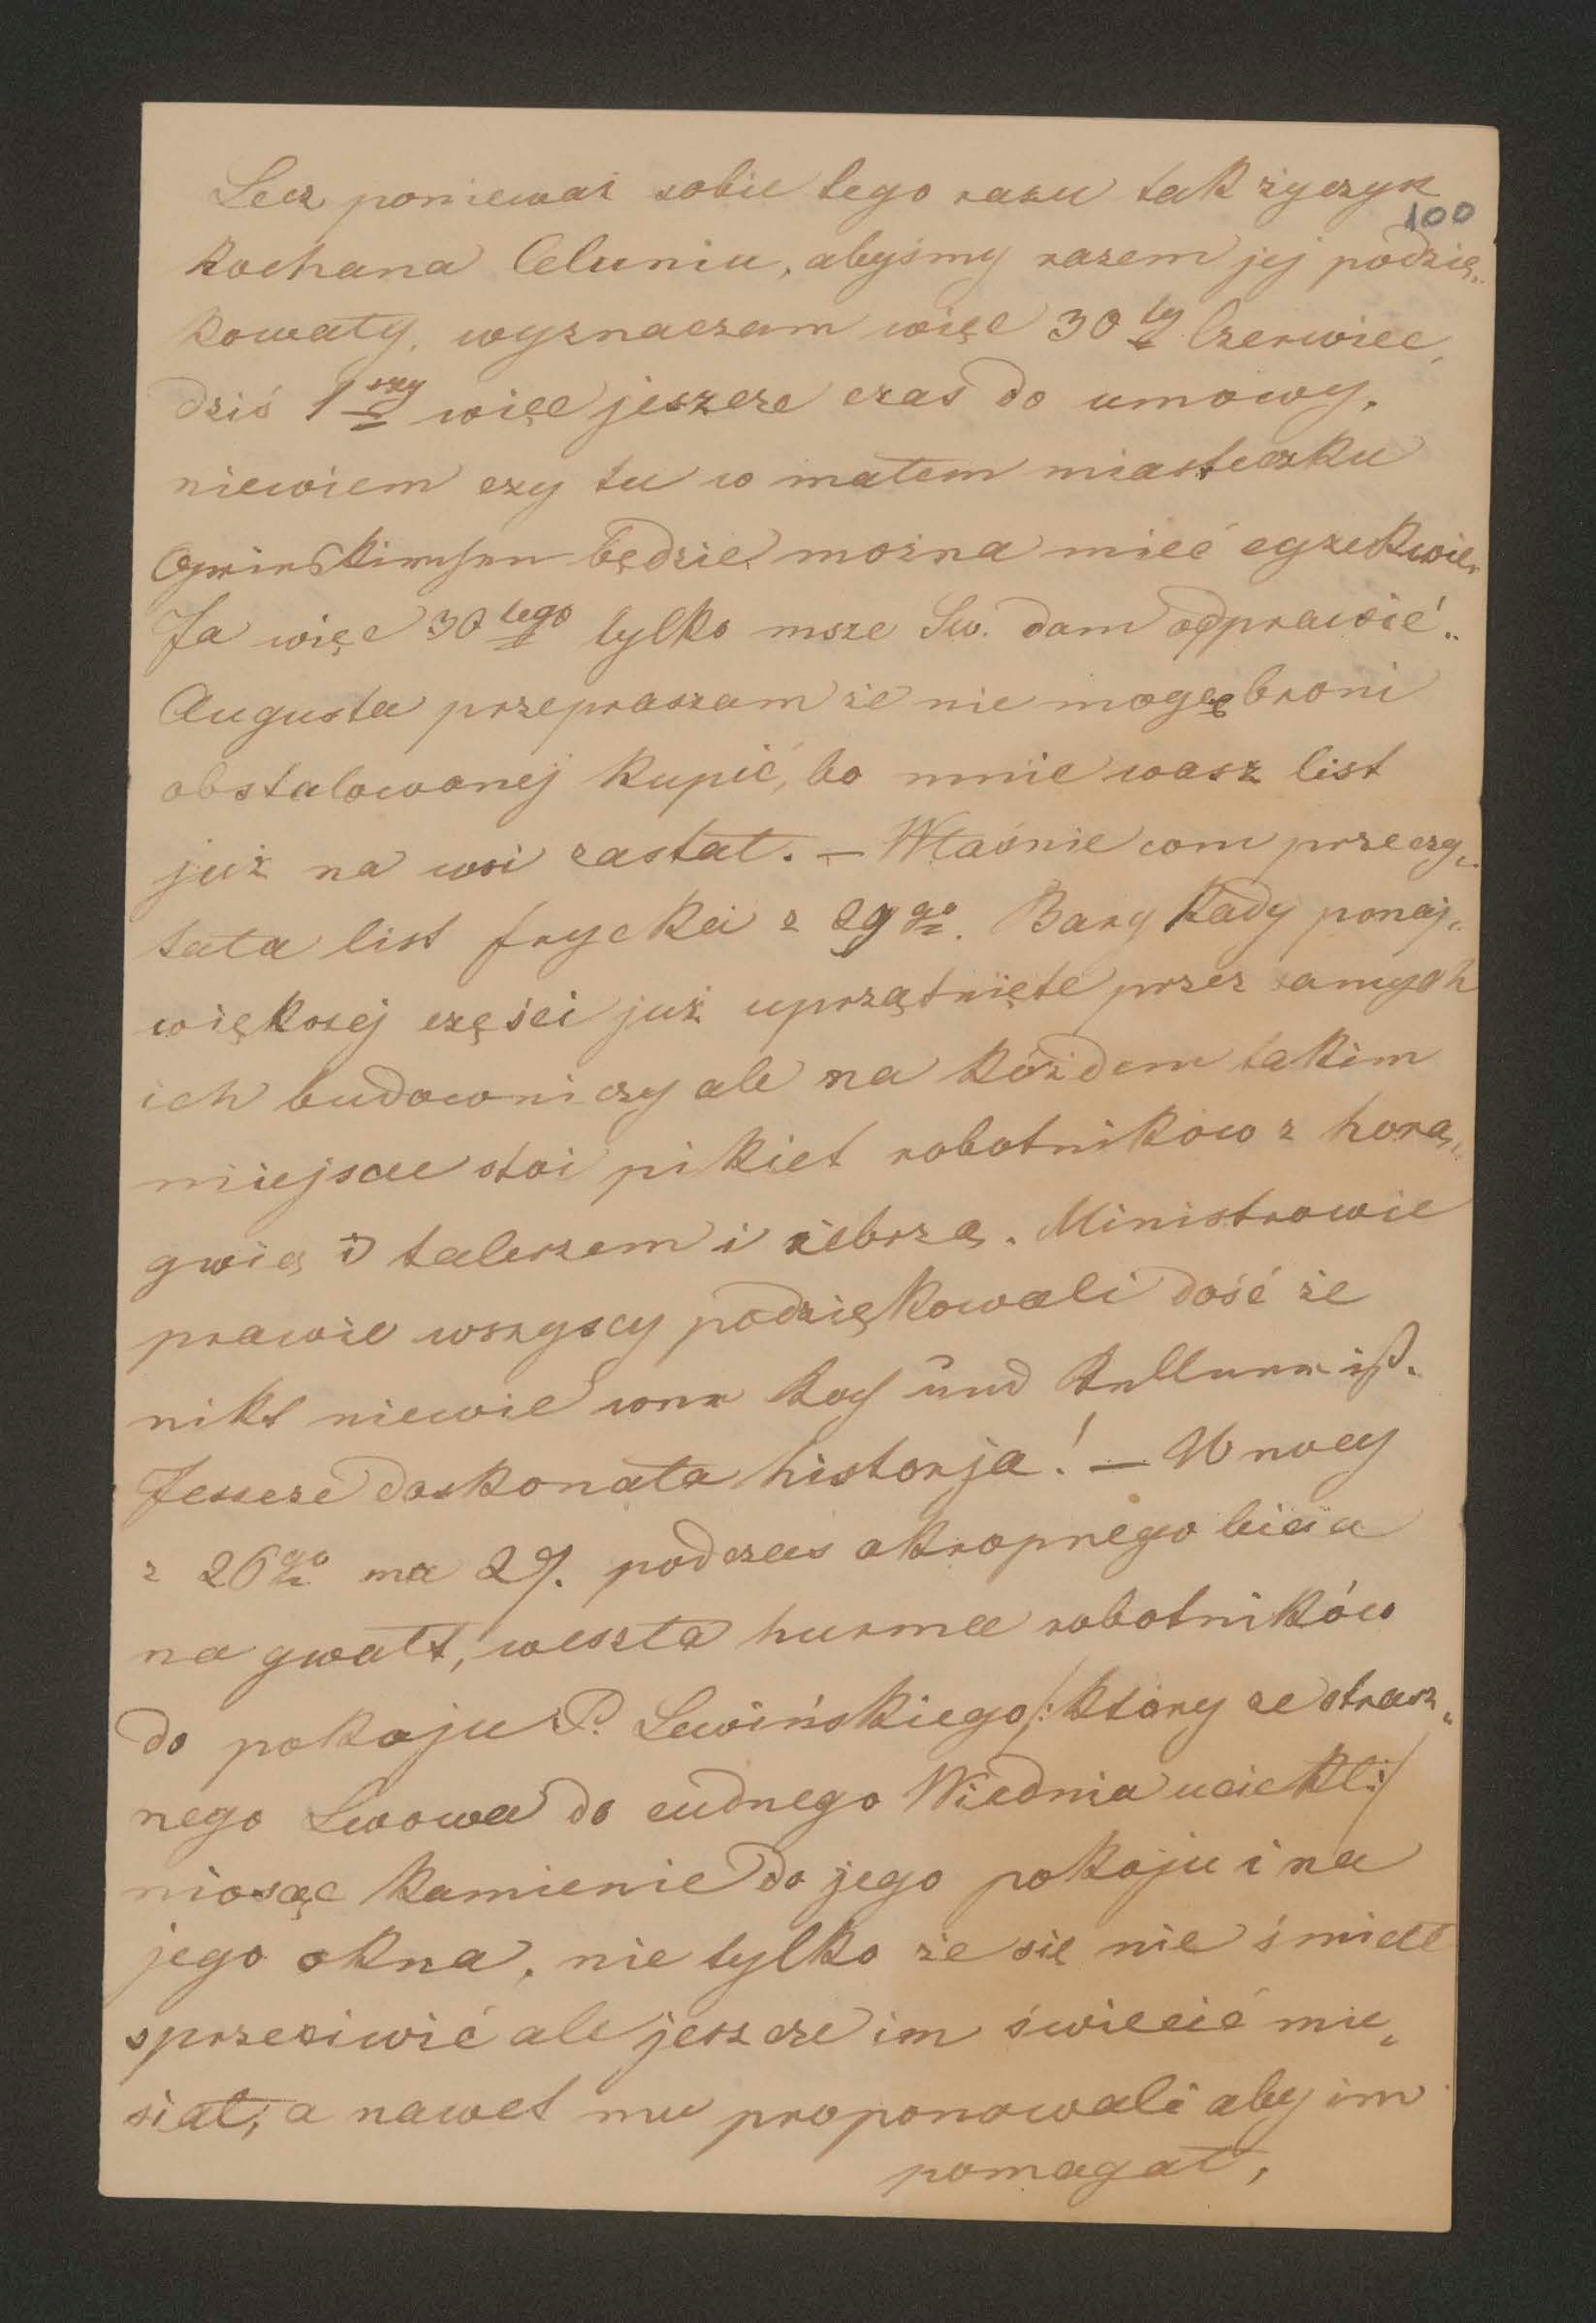 Lecz ponieważ sobie tego razu tak życzysz
100
kochana Celuniu, abyśmy razem jej podzię„
kowały, wyznaczam więc 30ty Czerwiec,
dziś 1szy więc jeszcze czas do umowy,
niewiem czy tu w małem miasteczku
będzie można mieć egzekwie.
Ja więc 30tego tylko msze Sw. dam odprawić„
Augusta przepraszam że nie mogę broni
obstalowanej kupić, bo mnie wasz list
już na wsi zastał. — Właśnie com przeczy„
tała list frycka z 29go. Barykady ponaj„
większej części już uprzątnięte przez samych
ich budowniczy ale na kóżdem takim
miejsce stoi pikiet robotników z horą„
gwią i talerzem i żebrzą. Ministrowie
prawie wszyscy podziękowali dość że
nikt niewie wer Koch und Kellner ist.
Jeszcze doskonała historja! — W nocy
z 26go na 27. podczas okropnego bicia
na gwałt, weszła hurma robotników
do pokoju P. Lewińskiego /: który ze strasz„
nego Lwowa do cudnego Wiednia uciekł :/
niosąc kamienie do jego pokoju i na
jego okna, nie tylko że się nie śmiał
sprzeciwić ale jeszcze im świecić mu„
siał, a nawet mu proponowali aby im
pomagał,